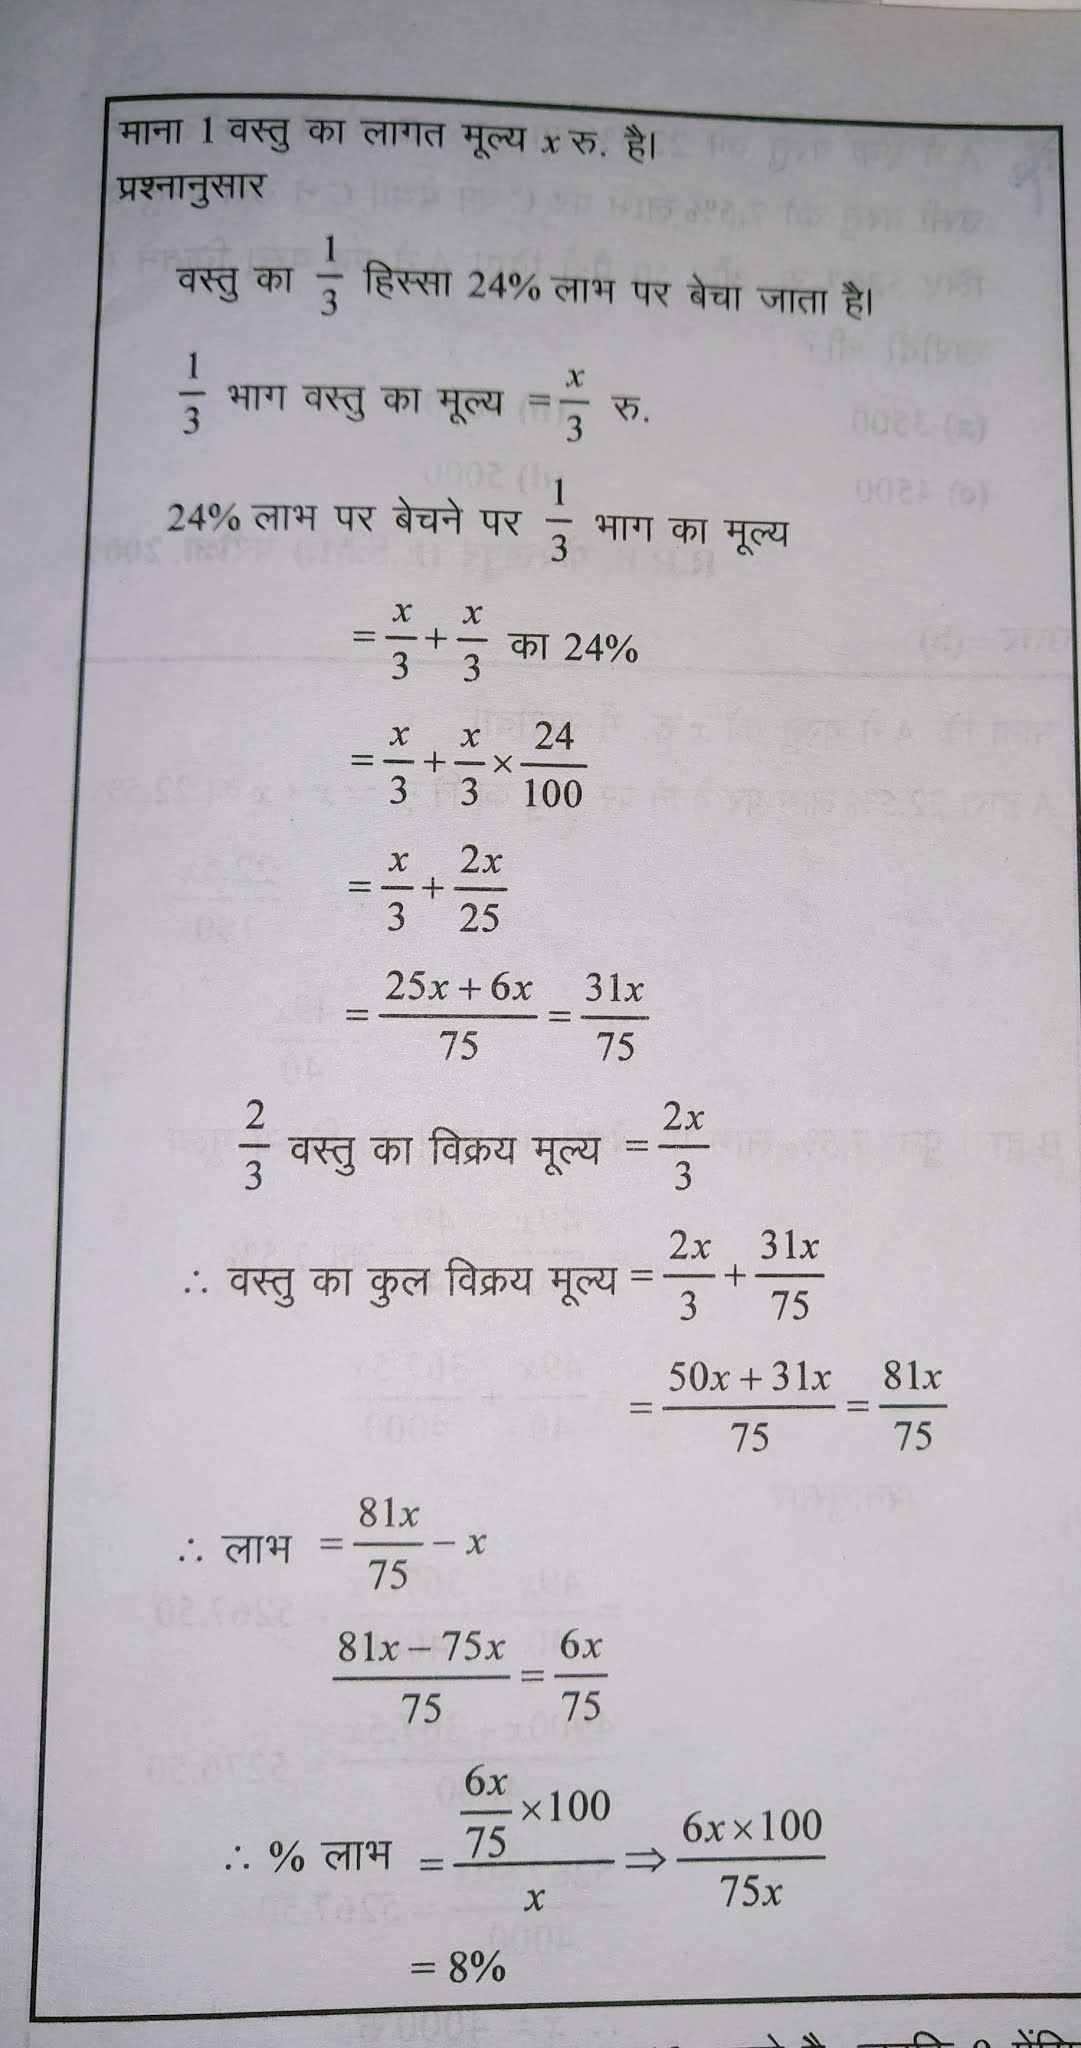 माना 1 वस्तु का लागत मूल्य x रु. है।
प्रश्नानुसार
वस्तु का 1/3 हिस्सा 24% लाभ पर बेचा जाता है।
1/3 भाग वस्तु का मूल्य = x/3 रु.
24% लाभ पर बेचने पर 1/3 भाग का मूल्य
= x/3 + x/3 का 24%
= x/3 + x/3 × 24/100
= x/3 + 2x/25
= (25x + 6x)/75 = 31x/75
2/3 वस्तु का विक्रय मूल्य = 2x/3
∴ वस्तु का कुल विक्रय मूल्य = 2x/3 + 31x/75
= (50x + 31x)/75 = 81x/75
∴ लाभ = 81x/75 − x
(81x − 75x)/75 = 6x/75
∴ % लाभ = (6x/75 × 100)/x ⇒ (6x × 100)/75x
= 8%